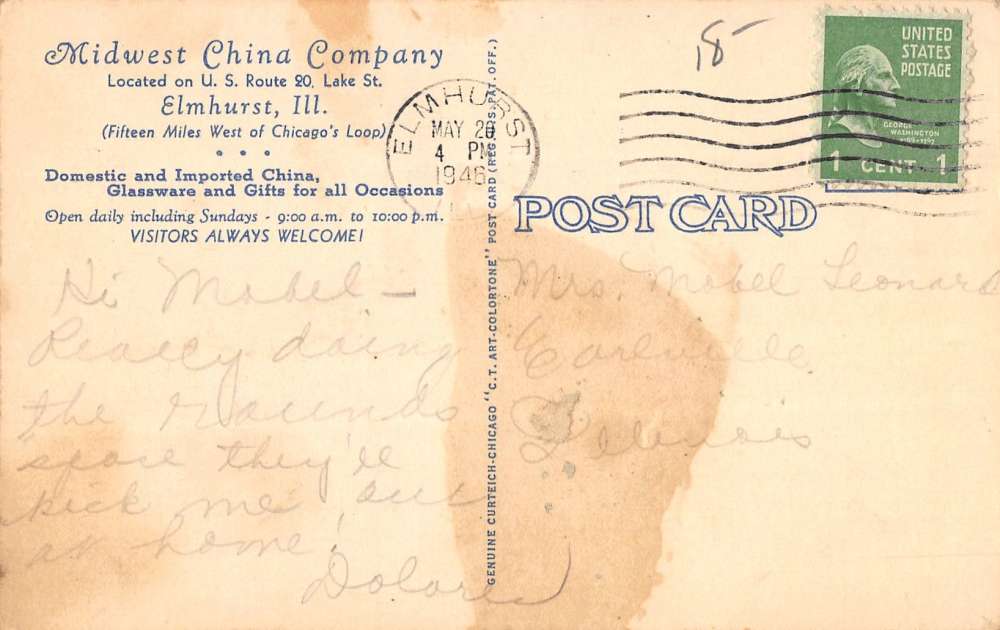 Midwest China Company
Located on U. S. Route 20, Lake St.
Elmhurst, Ill.
(Fifteen Miles West of Chicago's Loop)
Domestic and Imported China,
Glassware and Gifts for all Occasions
Open daily including Sundays - 9:00 a.m. to 10:00 p.m.
VISITORS ALWAYS WELCOME!
Hi Mabel -
Really doing
the rounds
they'll
kick me out
at home.
Dolores
GENUINE CURTEICH-CHICAGO "C. T. ART-COLORTONE" POST CARD (REG. U.S. PAT. OFF.)
ELMHURST
MAY 20
4 PM
1946
18
UNITED
STATES
POSTAGE
GEORGE
WASHINGTON
1 CENT 1
POST CARD
Mrs. Mabel Leonard
Earlville
Illinois